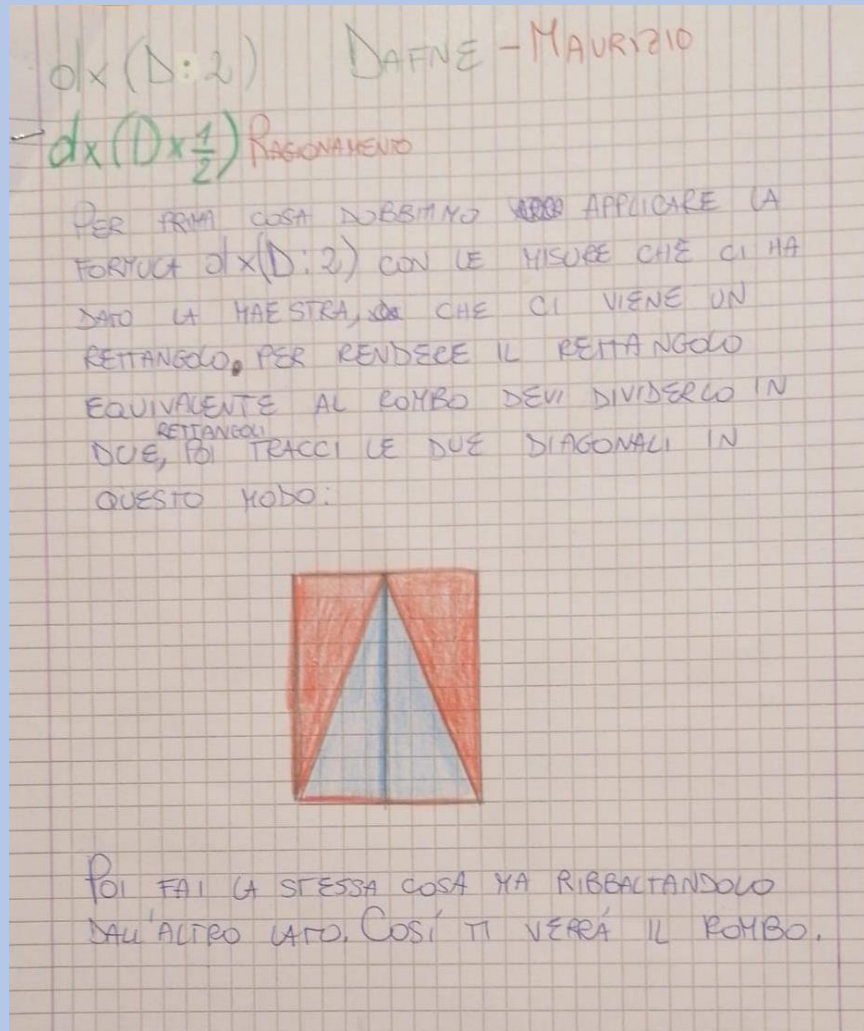 d×(D:2) DAFNE - MAURIZIO
d×(D×1/2) RAGIONAMENTO
PER PRIMA COSA DOBBIAMO APPLICARE LA
FORMULA d×(D:2) CON LE MISURE CHE CI HA
DATO LA MAESTRA, CHE CI VIENE UN
RETTANGOLO. PER RENDERE IL RETTANGOLO
EQUIVALENTE AL ROMBO DEVI DIVIDERLO IN
DUE RETTANGOLI, POI TRACCI LE DUE DIAGONALI IN
QUESTO MODO:
POI FAI LA STESSA COSA MA RIBBALTANDOLO
DALL'ALTRO LATO. COSÍ TI VERRÁ IL ROMBO.